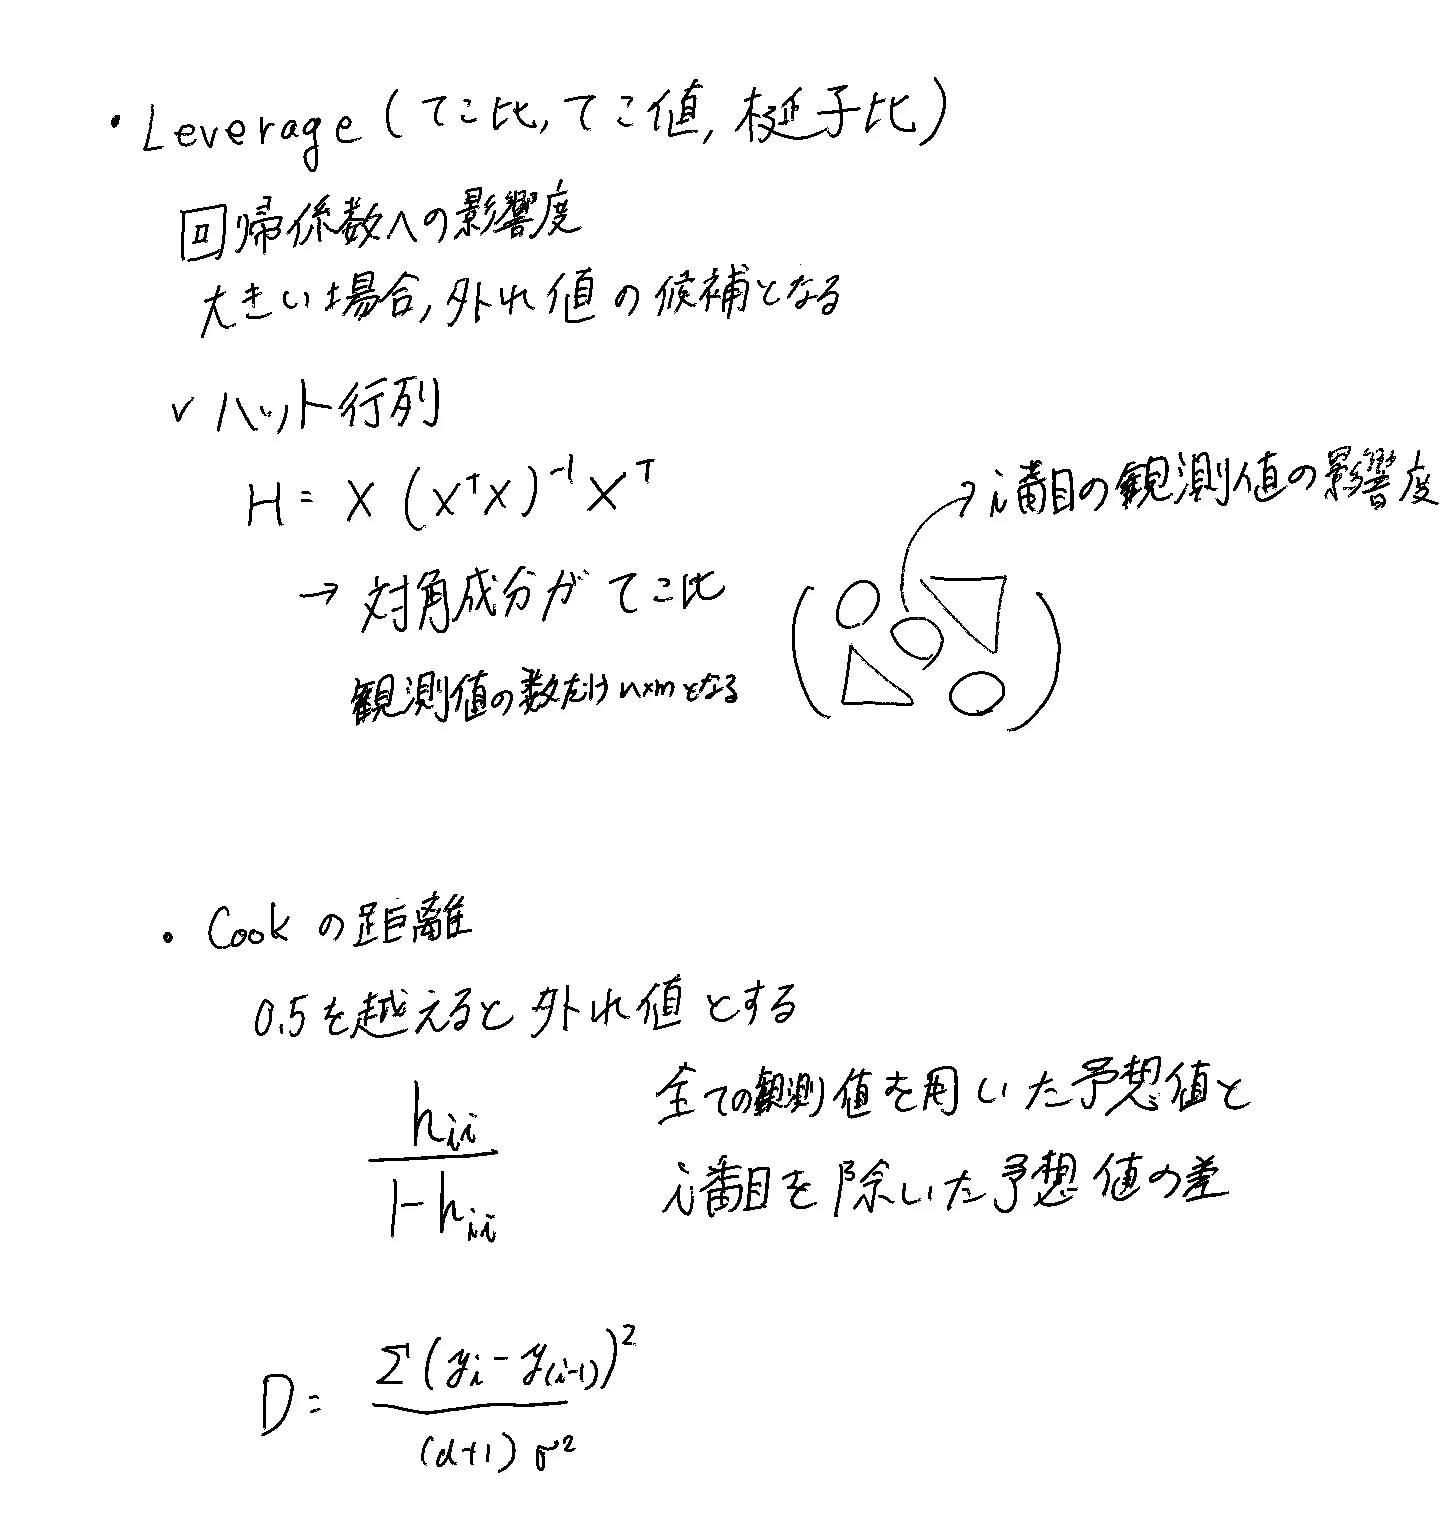 ・Leverage (てこ比, てこ値, 梃子比)
回帰係数への影響度
大きい場合, 外れ値の候補となる
✓ ハット行列
H = X (XᵀX)⁻¹ Xᵀ
→ i番目の観測値の影響度
→ 対角成分が てこ比
観測値の数だけ n×m となる
・Cook の距離
0.5を越えると 外れ値 とする
全ての観測値を用いた予想値と
hii
1-hii
i番目を除いた予想値の差
D = Σ(yi - y(i-1))²
(d+1) σ²